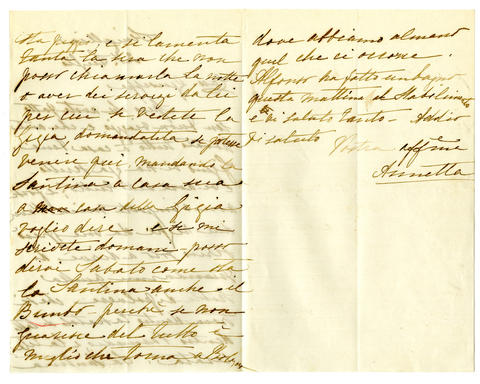 e si lamenta
tanto la sera che non
posso chiamarla la notte
o aver dei servizi da lei
per cui se vedete la
Gigia domandatela se potesse
venire qui mandando la
Santina a casa sua
a casa della Gigia
voglio dire e se mi
scrivete domani posso
dirvi Sabato come sta
la Santina anche il
Bimbo perchè se non
guarisce del tutto è
meglio che torna a
dove abbiamo almeno
quel che ci occorre.
Alfonso ha fatto un bagno
questa mattina al Stabilimento
e vi saluto tanto - Addio
vi saluto
Vostra affma
Annetta